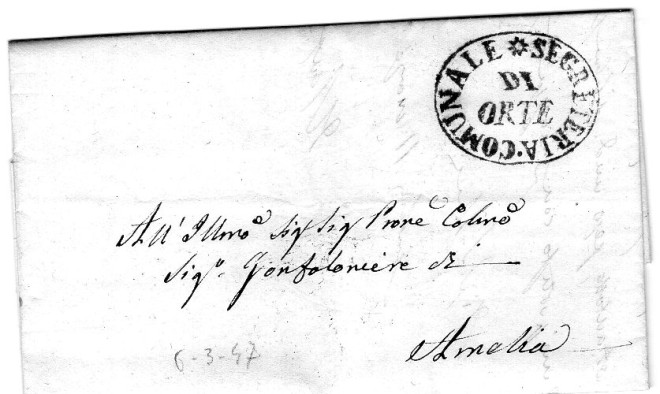 SEGRETERIA COMUNALE
DI
ORTE
All' Illmo Sig Sig Prone Colmo
Sigr. Gonfaloniere di
Amelia
6-3-47